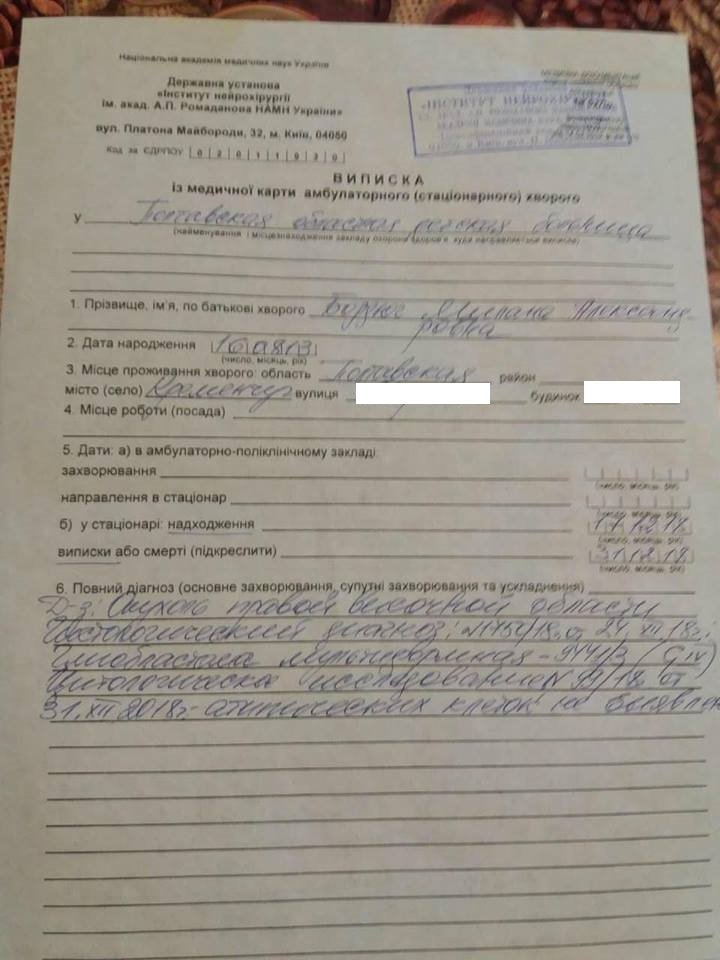 Національна академія медичних наук України
Державна установа
«Інститут нейрохірургії
ім. акад. А.П. Ромаданова НАМН України»
вул. Платона Майбороди, 32, м. Київ, 04050
Код за ЄДРПОУ 0 2 0 1 1 9 3 0
«ІНСТИТУТ НЕЙРОХІРУРГІЇ
ВИПИСКА
із медичної карти амбулаторного (стаціонарного) хворого
У Полтавская областая детская больница
(найменування і місцезнаходження закладу охорони здоров'я, куди направляється виписка)
1. Прізвище, ім'я, по батькові хворого Милана Александ-
ровна
2. Дата народження
(число, місяць, рік)
3. Місце проживання хворого: область Полтавская район
місто (село) Кременчуг вулиця будинок
4. Місце роботи (посада)
5. Дати: а) в амбулаторно-поліклінічному закладі:
захворювання
(число, місяць, рік)
направлення в стаціонар
(число, місяць, рік)
б) у стаціонарі: надходження 1 1 1 2 1 8
(число, місяць, рік)
виписки або смерті (підкреслити) 3 1 1 2 1 8
(число, місяць, рік)
6. Повний діагноз (основне захворювання, супутні захворювання та ускладнення)
Д-з: Опухоль правой височной области
Гистологический диагноз: от 24. XII. 18г.:
Глиобластома мультиформная - 9441/3 (G IV)
Цитологическое исследование 99/18 от
31. XII 2018г.- атипических клеток не выявлен